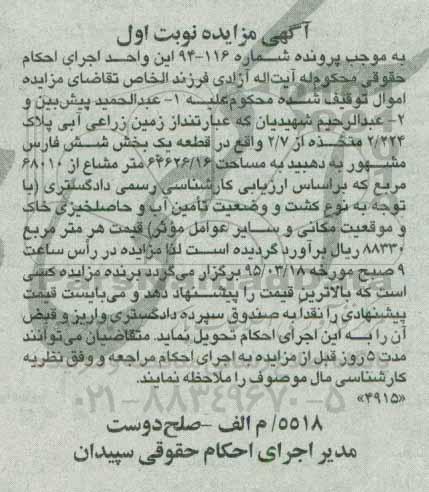 آگهی مزایده نوبت اول
به موجب پرونده شماره ۱۱۶-۹۴ این واحد اجرای احکام
حقوقی محکوم‌له آیت‌اله آزادی فرزند الخاص تقاضای مزایده
اموال توقیف شده محکوم‌علیه ۱- عبدالحمید پیش‌بین و
۲- عبدالرحیم شهیدیان که عبارتنداز زمین زراعی آبی پلاک
۲/۲۲۴ متخذه از ۲/۷ واقع در قطعه یک بخش شش فارس
مشهور به دهبید به مساحت ۶۴۶۲۶/۱۶ متر مشاع از ۶۸۰۱۰
مربع که براساس ارزیابی کارشناسی رسمی دادگستری (با
توجه به نوع کشت و وضعیت تأمین آب و حاصلخیزی خاک
و موقعیت مکانی و سایر عوامل مؤثر) قیمت هر متر مربع
۸۸۳۳۰ ریال برآورد گردیده است لذا مزایده در رأس ساعت
۹ صبح مورخه ۹۵/۰۳/۱۸ برگزار می‌گردد برنده مزایده کسی
است که بالاترین قیمت را پیشنهاد دهد و می‌بایست قیمت
پیشنهادی را نقدا به صندوق سپرده دادگستری واریز و قبض
آن را به این اجرای احکام تحویل نماید. متقاضیان می‌توانند
مدت ۵ روز قبل از مزایده به اجرای احکام مراجعه و وفق نظریه
کارشناسی مال موصوف را ملاحظه نمایند.
«۴۹۱۵»
۰۲۱-۸۸۳۴۹۶۷۰-۵
۵۵۱۸/ م الف -صلح‌دوست
مدیر اجرای احکام حقوقی سپیدان